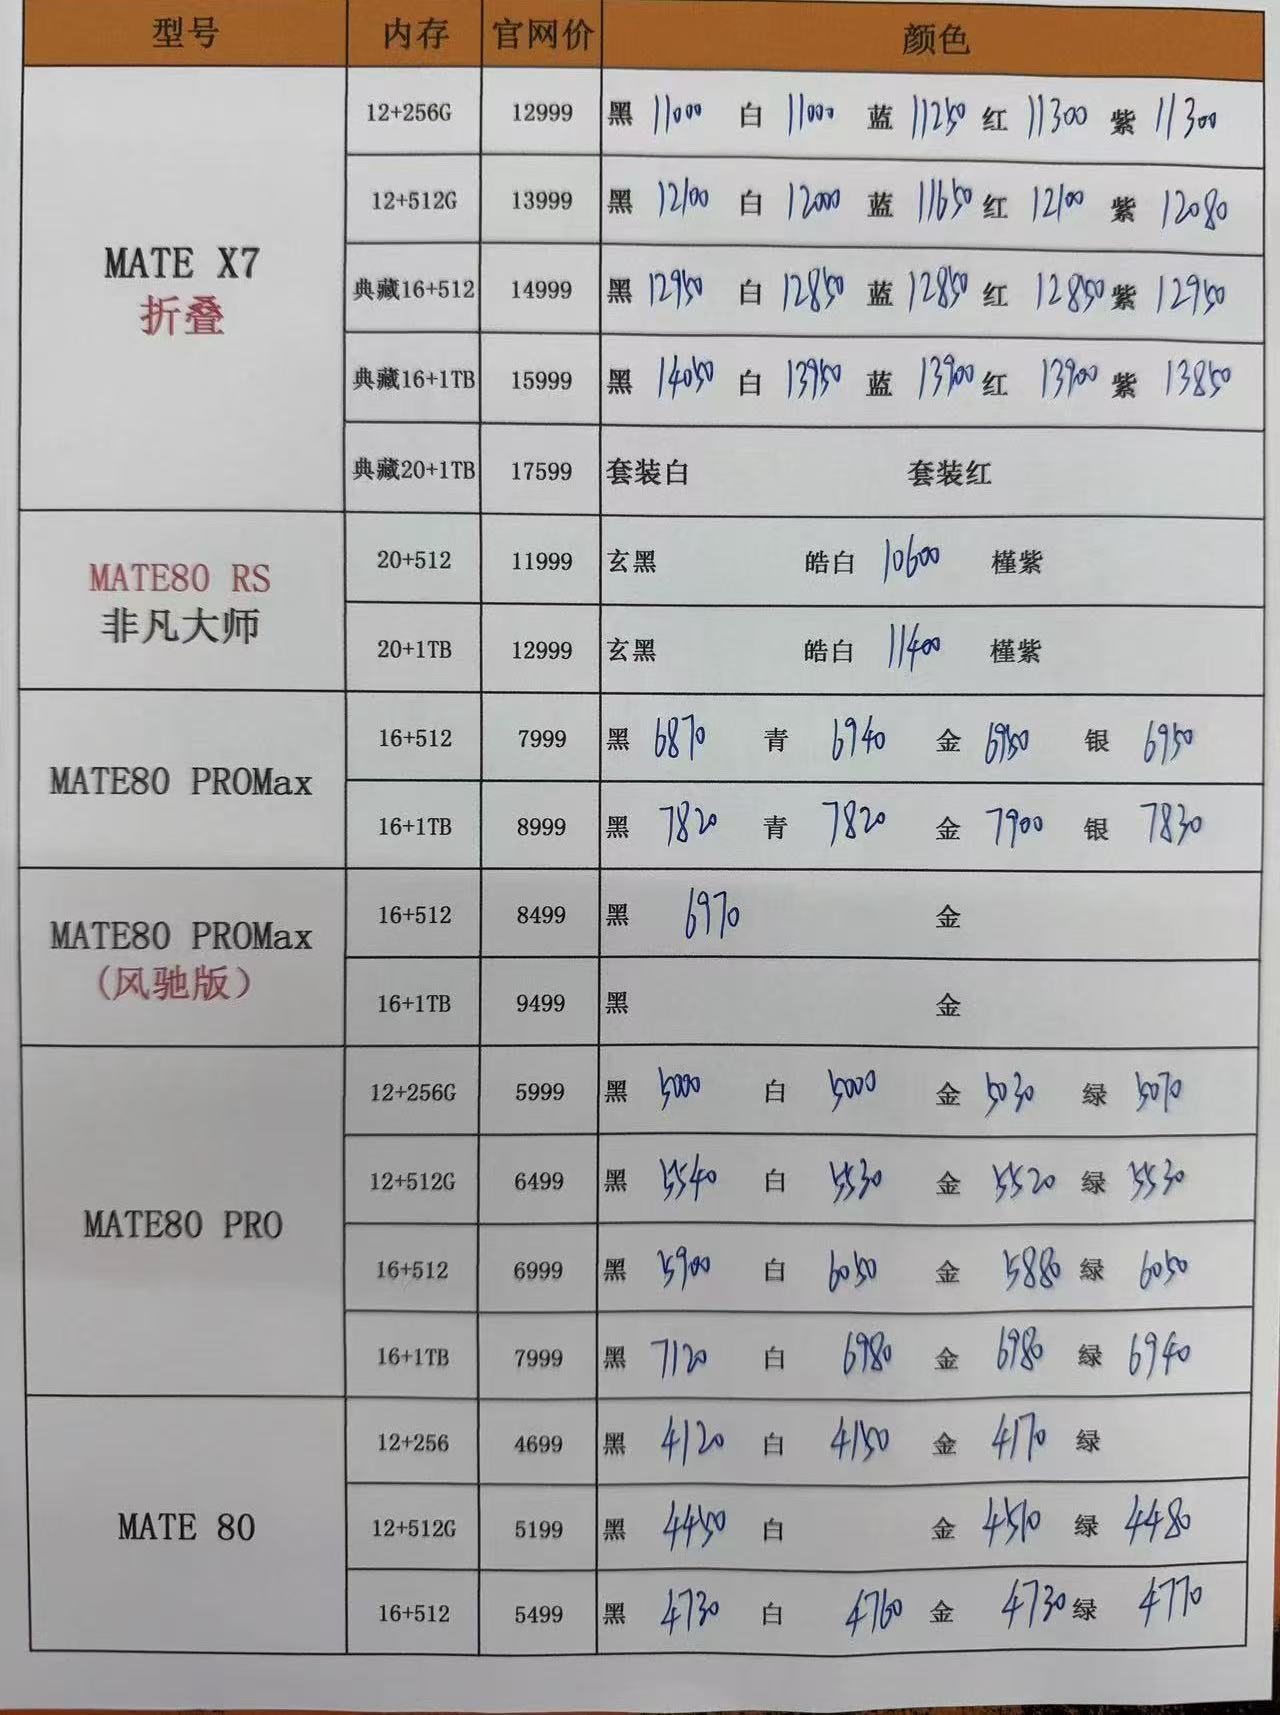 型号 内存 官网价 颜色
12+256G 12999 黑 11000 白 11000 蓝 11250 红 11300 紫 11300
12+512G 13999 黑 12100 白 12000 蓝 11650 红 12100 紫 12080
MATE X7
折叠
典藏16+512 14999 黑 12950 白 12850 蓝 12850 红 12850 紫 12950
典藏16+1TB 15999 黑 14050 白 13950 蓝 13900 红 13900 紫 13850
典藏20+1TB 17599 套装白 套装红
MATE80 RS
非凡大师
20+512 11999 玄黑 皓白 10600 槿紫
20+1TB 12999 玄黑 皓白 11400 槿紫
MATE80 PROMax
16+512 7999 黑 6870 青 6940 金 6950 银 6950
16+1TB 8999 黑 7820 青 7820 金 7900 银 7830
MATE80 PROMax
(风驰版)
16+512 8499 黑 6970 金
16+1TB 9499 黑 金
MATE80 PRO
12+256G 5999 黑 5000 白 5000 金 5030 绿 5070
12+512G 6499 黑 5540 白 5530 金 5520 绿 5530
16+512 6999 黑 5900 白 6050 金 5880 绿 6050
16+1TB 7999 黑 7120 白 6980 金 6980 绿 6940
MATE 80
12+256 4699 黑 4120 白 4150 金 4170 绿
12+512G 5199 黑 4450 白 金 4510 绿 4480
16+512 5499 黑 4730 白 4760 金 4730 绿 4770